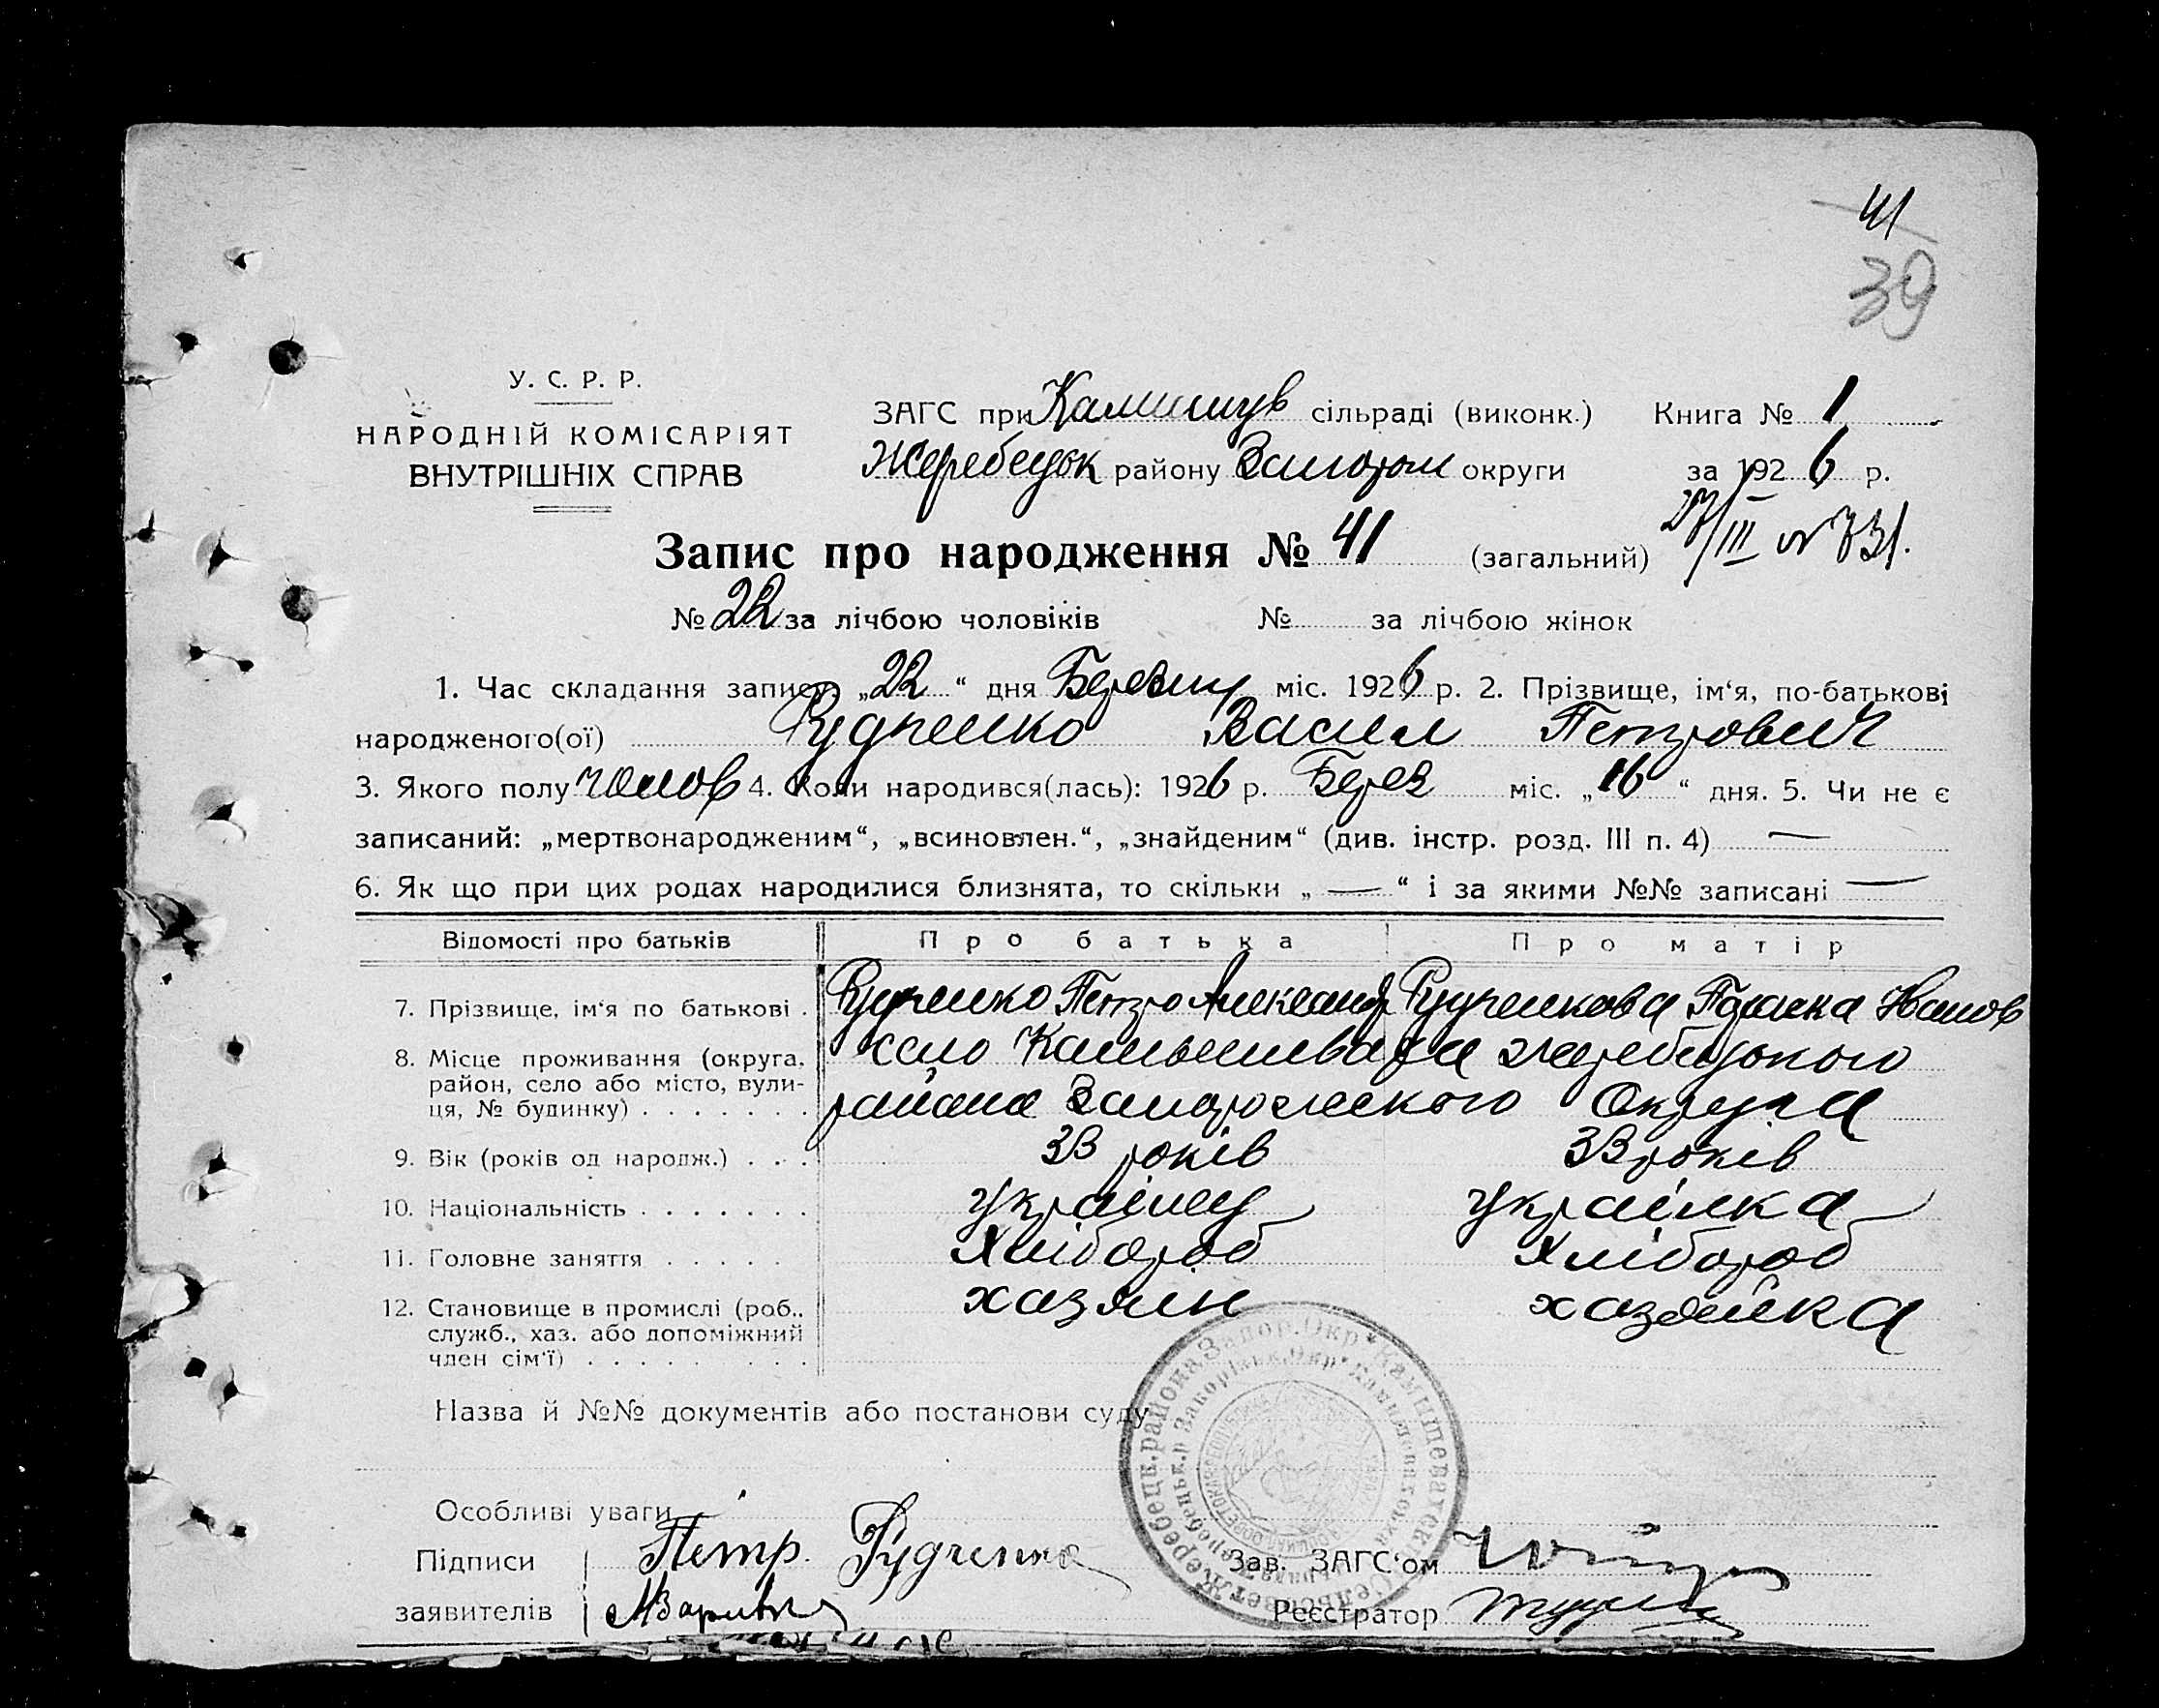 41
39
У. С. Р. Р.
НАРОДНІЙ КОМІСАРІЯТ
ВНУТРІШНІХ СПРАВ
ЗАГС при Камишув сільраді (виконк.) Книга № 1
Жеребецьк району Запорож округи за 1926 р.
Запис про народження № 41 (загальний) 27/III № 731.
№ 22 за лічбою чоловіків № за лічбою жінок
1. Час складання запису: „22“ дня Березня міс. 1926 р. 2. Прізвище, ім‘я, по-батькові
народженого(ої) Рудченко Васил Петрович
3. Якого полу чолов 4. Коли народився(лась): 1926 р. Берез міс. „16“ дня. 5. Чи не є
записаний: „мертвонародженим“, „всиновлен.“, „знайденим“ (див. інстр. розд. III п. 4) —
6. Як що при цих родах народилися близнята, то скільки „ — “ і за якими №№ записані —
Відомості про батьків Про батька Про матір
7. Прізвище, ім‘я по батькові . Рудченко Петро Александ Рудченкова Иванов
8. Місце проживання (округа, район, село або місто, вулиця, № будинку) . . . . . . . село Камышеваха Жеребецького
района Запорожского Округа
9. Вік (років од народж.) . . . 33 років 33 років
10. Національність . . . . . . . українец українка
11. Головне заняття . . . . . Хлібороб Хлібороб
12. Становище в промислі (роб., служб., хаз. або допоміжний член сім‘ї) . . . . . . . . . хазяін хазяйка
Назва й №№ документів або постанови суду
Особливі уваги
Підписи Петр. Рудченко Зав. ЗАГС‘ом
заявителів Реєстратор